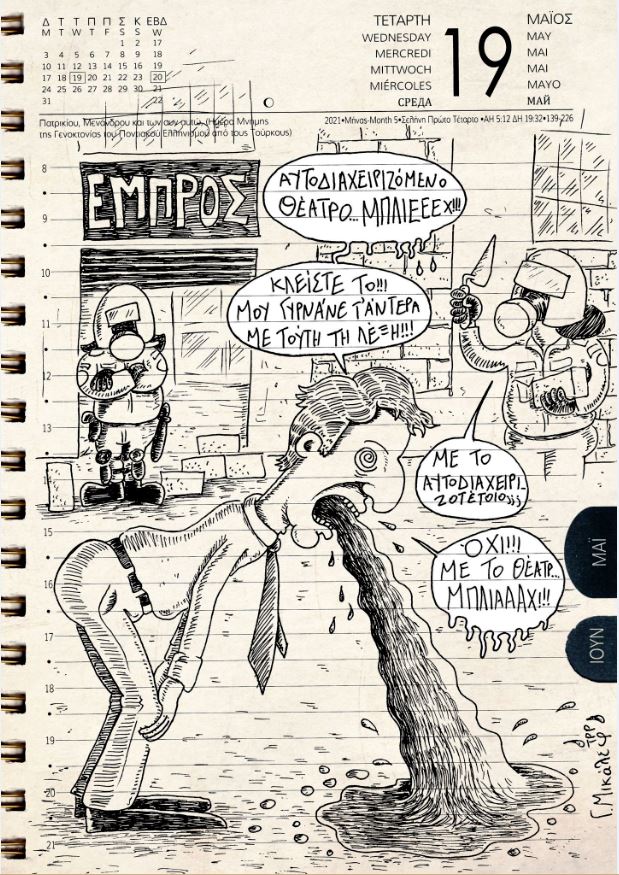 Δ Τ Τ Π Π Σ Κ ΕΒΔ
M T W T F S S W
1 2 17
3 4 5 6 7 8 9 18
10 11 12 13 14 15 16 19
17 18 19 20 21 22 23 20
24 25 26 27 28 29 30 21
31 22
ΤΕΤΑΡΤΗ
WEDNESDAY
MERCREDI
MITTWOCH
MIÉRCOLES
СРЕДА
19
ΜΑΪΟΣ
MAY
MAI
MAI
MAYO
МАЙ
Πατρικίου, Μενάνδρου και των συν αυτώ, (Ημέρα Μνήμης
της Γενοκτονίας του Ποντιακού Ελληνισμού από τους Τούρκους)
2021•Μήνας-Month 5•Σελήνη Πρώτο Τέταρτο •ΑΗ 5:12 ΔΗ 19:32•139-226
8
9
10
11
12
13
15
16
17
18
19
20
21
ΕΜΠΡΟΣ
ΑΥΤΟΔΙΑΧΕΙΡΙΖΌΜΕΝΟ
ΘΈΑΤΡΟ... ΜΠΛΙΕΕΕΧ!!!
ΚΛΕΊΣΤΕ ΤΟ!!!
ΜΟΥ ΓΥΡΝΆΝΕ Τ'ΆΝΤΕΡΑ
ΜΕ ΤΟΎΤΗ ΤΗ ΛΈΞΗ!!!
ΜΕ ΤΟ
ΑΥΤΟΔΙΑΧΕΙΡΙ-
ΖΟΤΈΤΟΙΟ;;;
ΌΧΙ!!!
ΜΕ ΤΟ ΘΈΑΤΡ...
ΜΠΛΙΑΑΑΧ!!!
ΜΑΪ
ΙΟΥΝ
Γ. Μικάλεφ